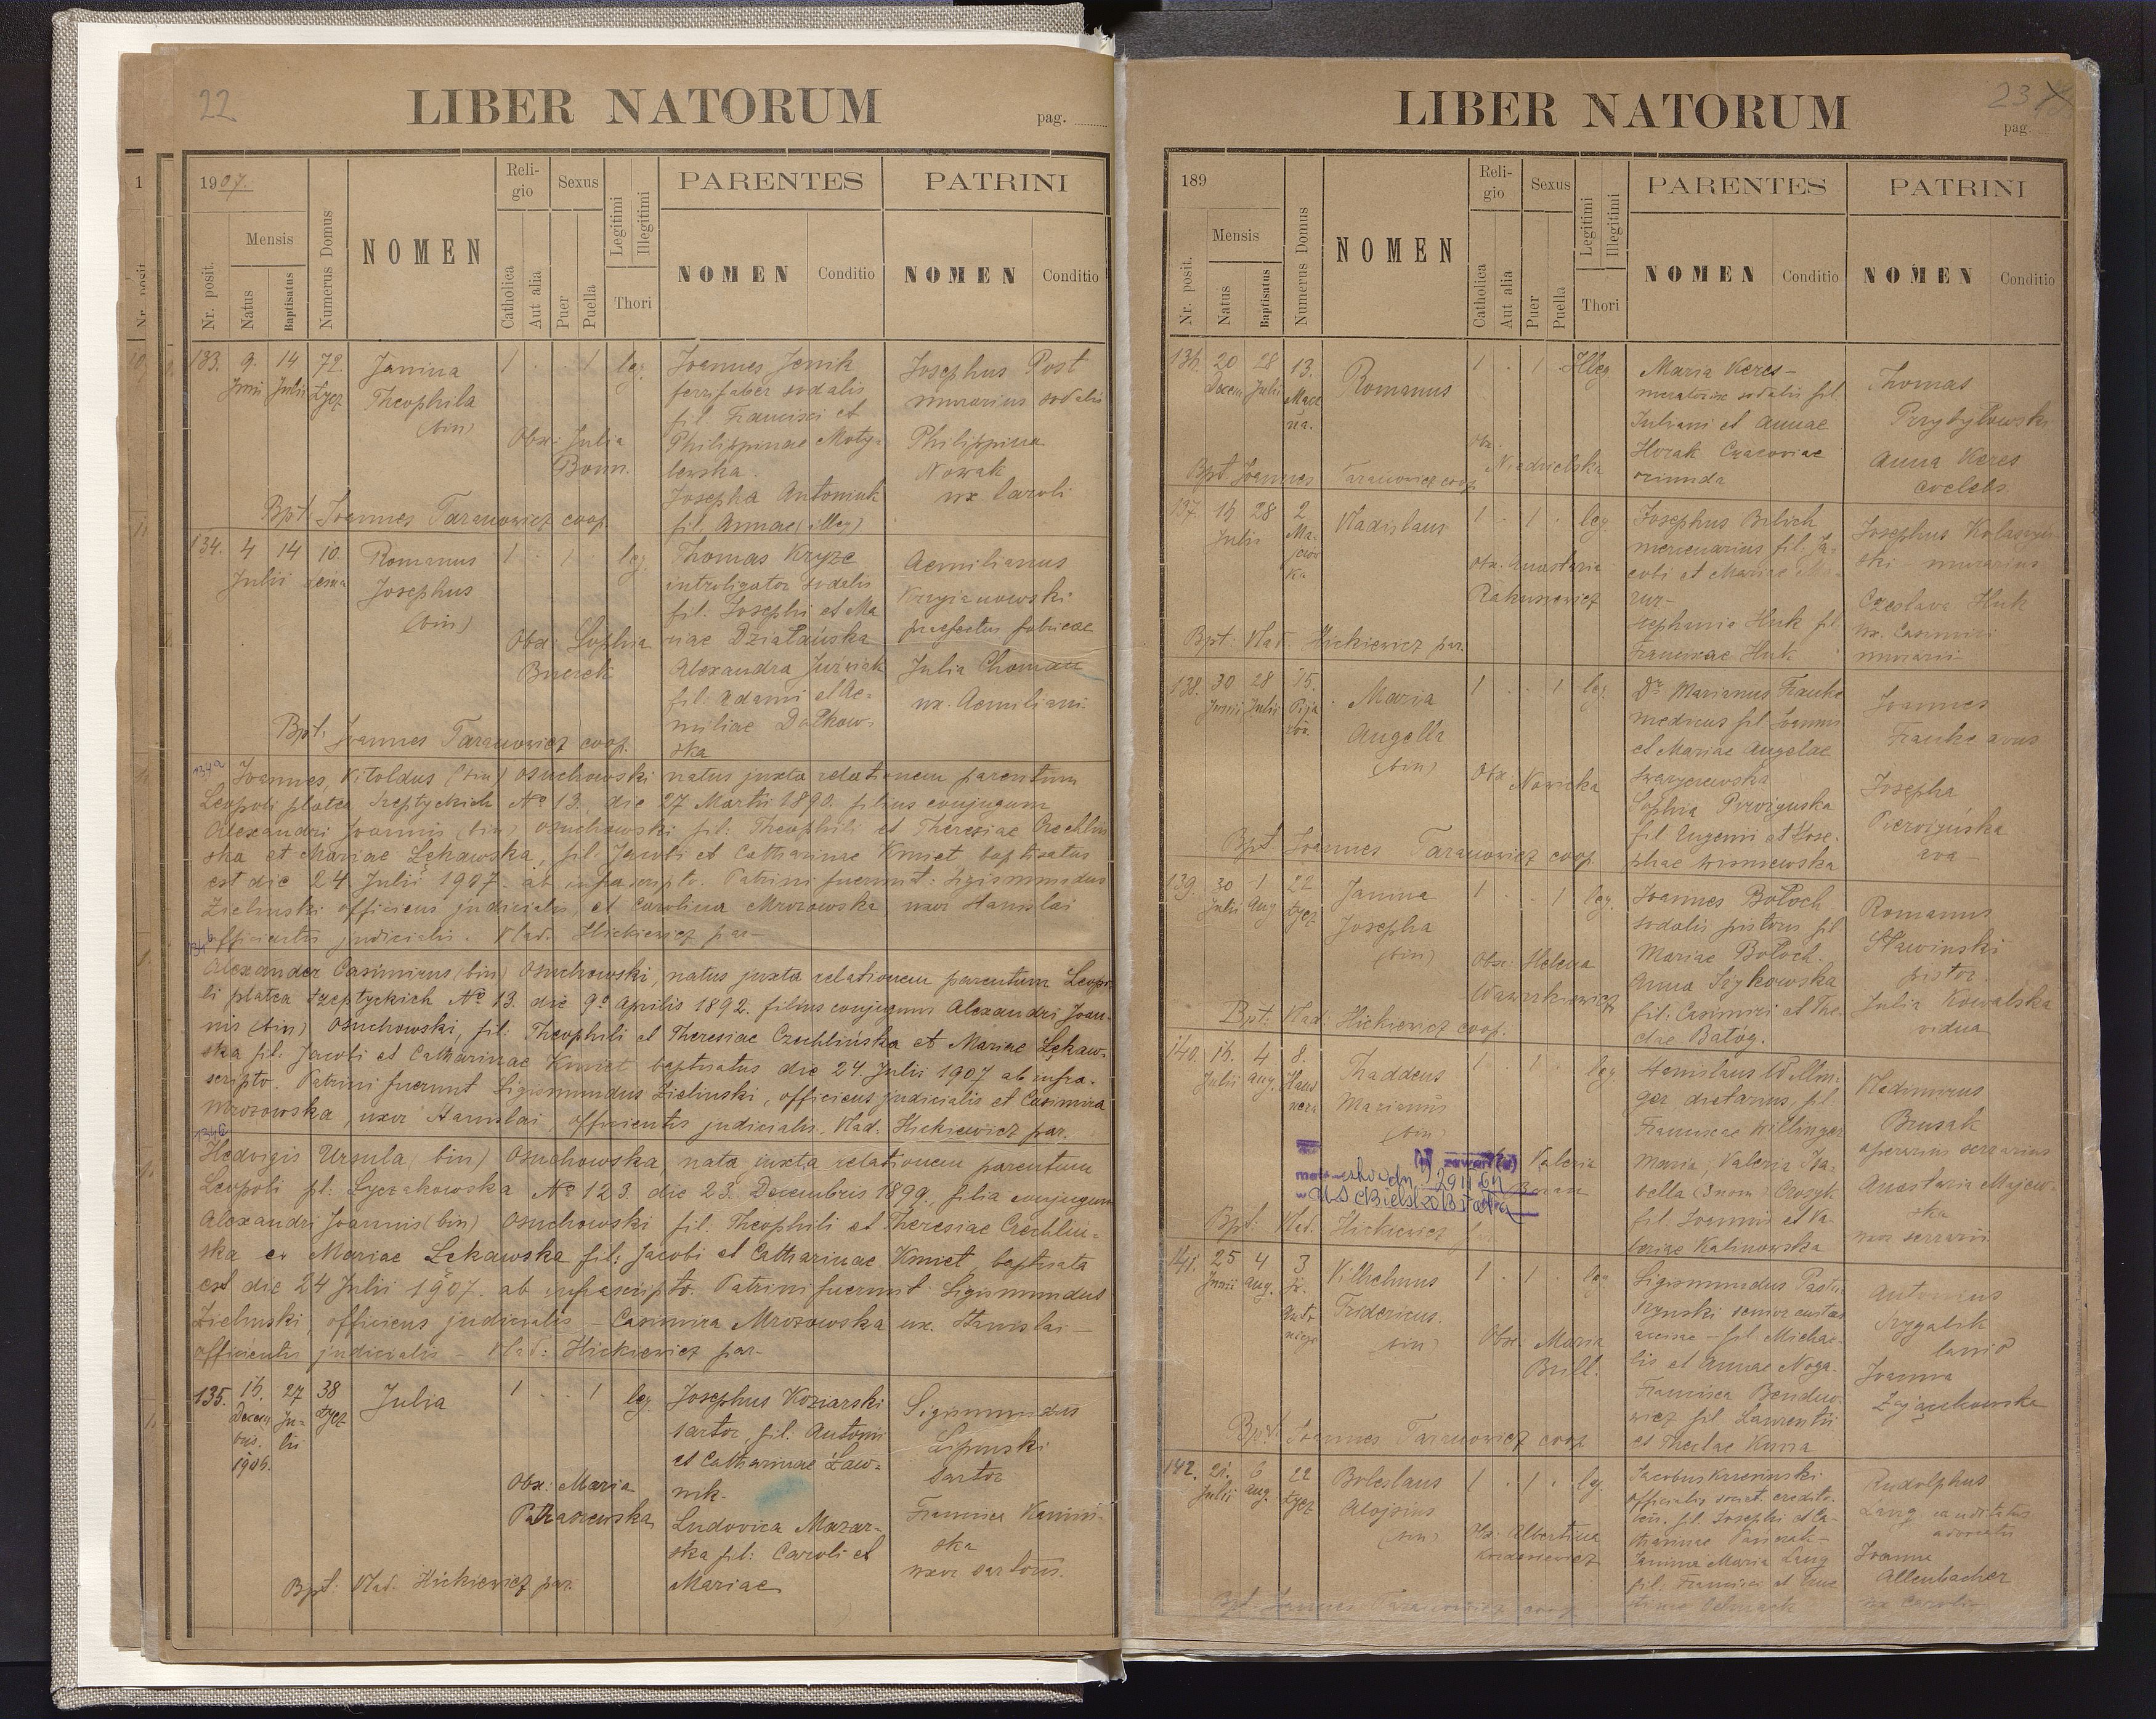 22
LIBER NATORUM
pag.
1907.
Mensis
Nr. posit.
Natus
Baptisatus
Numerus Domus
NOMEN
Reli-
gio
Catholica
Aut alia
Sexus
Puer
Puella
Legitimi
Illegitimi
Thori
PARENTES
NOMEN
Conditio
PATRINI
NOMEN
Conditio
133. 9. Junii 14 Julii 72. Łycz
Janina
Theophila
(bin)
1 1 leg.
Obx: Julia
Joannes Jenik
ferrifaber sodalis
fil. Francisci et
Philippinae Moty-
lewska.
Josepha Antoniuk
fil. Annae (illeg)
Josephus Post
murarius sodalis
Philippina
Nowak
ux Caroli
Bpt. Joannes Taranowicz coop.
134. 4 Julii 14 10.
Romanus
Josephus
(bin)
1 1 leg.
Obx: Sophia
Thomas Kryze
introligator sodalis
fil. Josephi et Ma
Alexandra Juźwiak
fil: Adami et Ae-
miliae Dołkow-
ska
Aemilianus
praefectus fabricae
Julia Choman
ux. Aemiliani
Bpt: Joannes Taranowicz coop.
134a
Joannes, Vitoldus (bin) Osuchowski natus juxta relationem parentum
Leopoli platea Szeptyckich No 13. die 27 Martii 1890. filius conjugum
Alexandri Joannis (bin) Osuchowski fil: Theophili et Theresiae Czechliń
ska et Mariae Łękawska, fil. Jacobi et Catharinae Kmiet baptisatus
est die 24 Julii 1907. ab infrascripto. Patrini fuerunt: Sigismundus
Zielinski officius judicialis, et Carolina Mrozowska, uxor Stanislai
officientis judicialis. Vlad. Hickiewicz par-
134b
Alexander Casimirus (bin) Osuchowski, natus juxta relationem parentum Leopo
li platea Szeptyckich No 13. die 9o Aprilis 1892. filius conjugum Alexandri Joan-
nis (bin) Osuchowski, fil: Theophili et Theresiae Czechlińska et Mariae Łękaw-
ska fil: Jacobi et Catharinae Kmiet baptisatus die 24. Julii 1907 ab infra-
scripto. Patrini fuerunt Sigismundus Zielinski, officius judicialis et Casimira
Mrozowska, uxor Stanislai, officientis judicialis. Vlad. Hickiewicz par.
134c
Hedvigis Ursula (bin) Osuchowska, nata juxta relationem parentum
Leopoli pl: Łyczakowska No 123. die 23. Decembris 1899. filia conjugum
Alexandri Joannis (bin) Osuchowski fil: Theophili et Theresiae Czechliń-
ska et Mariae Łękawska fil: Jacobi et Catharinae Kmiet, baptisata
est die 24 Julii 1907. ab infrascripto. Patrini fuerunt Sigismundus
Zielinski, officius judicialis - Casimira Mrozowska ux. Stanislai-
officientis judicialis - Vlad: Hickiewicz par-
135. 16. Decem bris. 1906. 27 Ju- lii 38 Łycz
Julia
1 1 leg.
Obx: Maria
Josephus Koziarski
sartor, fil. Antonii
et Catharinae Ław-
nik.
Ludovica Mazar-
ska fil: Caroli et
Mariae
Sigismundus
Lipinski
sartor
Francisca Kamin-
ska
uxor sartoris.
Bpt: Vlad. Hickiewicz par.
23
LIBER NATORUM
pag.
189
Mensis
Nr. posit.
Natus
Baptisatus
Numerus Domus
NOMEN
Reli-
gio
Catholica
Aut alia
Sexus
Puer
Puella
Legitimi
Illegitimi
Thori
PARENTES
NOMEN
Conditio
PATRINI
NOMEN
Conditio
136. 20 Decem 28 Julii 13.
Romanus
1 1 Illeg
Obx. Niedzielska
Maria Keres-
sodalis fil.
Juliani et Annae
Horak Cracoviae
oriunda
Thomas
Przybyłowski
Anna Keres
coelebs.
Bpt. Joannes Taranowicz coop
137. 16 Julii 28 2 Ma-
Vladislaus
1 1 leg.
Obx. Anastasia
Josephus Bilich
mercenarius fil. Ja-
cobi et Mariae
Stephania Huk fil.
Franciscae Huk
Josephus
murarius
Czeslava Huk
ux. Casimiri
murarii
Bpt: Vlad. Hickiewicz par.
138. 30 Junii 28 Julii 15.
Maria
Angella
(bin)
1 1 leg.
Obx: Nowicka
Dr Marianus Franke
medicus fil Joannis
et Mariae Angelae
fil Eugenii et Jose-
phae Wisniewska
Joannes
Franke avus
Josepha
ava
Bpt Joannes Taranowicz coop
139. 30 Julii 1 Aug 22 Łycz
Janina
Josepha
(bin)
1 1 leg.
Obx: Helena
Joannes Bołoch
sodalis pistoris fil
Mariae Bołoch.
Anna Szykowska
fil: Casimiri et The-
clae Batóg.
Romanus
Sławinski
pistor.
Julia Kowalska
vidua
Bpt: Vlad: Hickiewicz coop.
140. 16. Julii 4 Aug. 8.
Thaddeus
Marianus
(bin)
1 1 leg
Valeria
Stanislaus Willin-
ger, dietarius, fil
Franciscae Willinger
Maria, Valeria Isa-
bella (3 nom)
fil. Joannis et Va-
leriae Kalinowska
Vladimirus
Brusak
operarius serrarius
Anastasia Majew-
ska
uxor serrarii
Bpt: Vlad. Hickiewicz
141. 25 Junii 4 Aug. 3
Vilhelmus
Fridericus.
(bin)
1 1 leg
Obx. Maria
Brill.
Sigismundus
senior custos
fil. Michae-
lis et Annae Noga-
Francisca
fil Laurentii
et Theclae
Antonius
Joanna
Zajączkowska
Bpt. Joannes Taranowicz coop
142. 21. Julii 6 Aug. 22 Łycz
Boleslaus
Alojsius
(bin)
1 1 leg.
Obx: Albertina
fil. Josephi et Ca-
Janina Maria Lang
fil. Francisci et
Rudolphus
Lang
Joanna
Allenbacher
ux Caroli
Bpt. Joannes Taranowicz coop